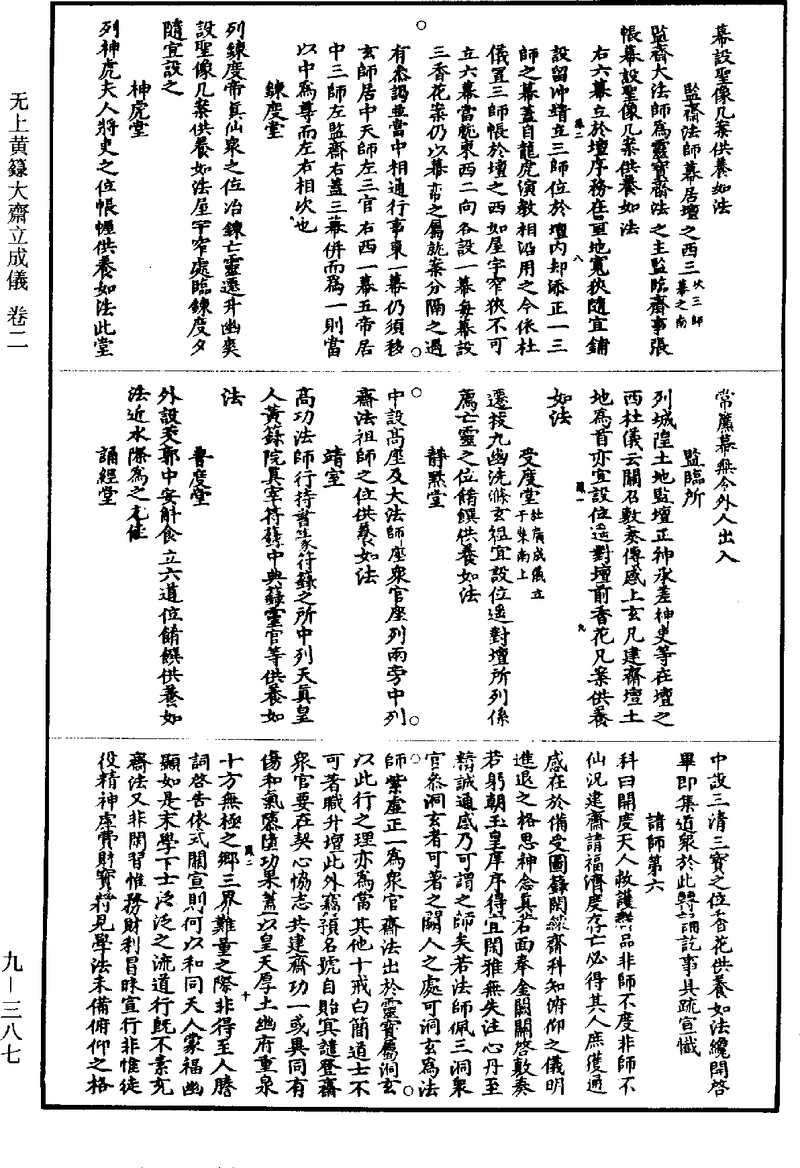 无上黄籙大齋立成儀 卷二
九—三八七
幕設聖像几案供養如法
監齋法師幕居壇之西三次三師幕之南
監齋大法師為靈寶齋法之主監臨齋事張
帳幕設聖像几案供養如法
右六幕立於壇序務在面地寬狹隨宜鋪
設留冲靖立三師位於壇內却添正一三
師之幕蓋自龍虎演教相沿用之今依杜
儀置三師帳於壇之西如屋宇窄狹不可
立六幕當就東西二向各設一幕每幕設
三香花案仍以幕帟之屬就案分隔之遇
有叅謁並當中相通行事東一幕仍須移
玄師居中天師左三官右西一幕五帝居
中三師左監齋右蓋三幕併而為一則當
以中為尊而左右相次也
鍊度堂
列鍊度帝真仙衆之位冶鍊亡靈遷升幽爽
設聖像几案供養如法屋宇窄處臨鍊度夕
隨宜設之
神虎堂
列神虎夫人將吏之位帳幄供養如法此堂
常簾幕無令外人出入
監臨所
列城隍土地監壇正神承差神吏等在壇之
西杜儀云關召敷奏傳感上玄凡建齋壇土
地為首亦宜設位遥對壇前香花凡案供養
如法
受度堂杜廣成儀立于柴南上
遷拔九幽洗滌玄祖宜設位遥對壇所列係
薦亡靈之位餚饌供養如法
靜黙堂
中設髙座及大法師座衆官座列兩旁中列
齋法祖師之位供養如法
靖室
髙功法師行持書篆符籙之所中列天真皇
人黄籙院真宰符籙中典籙靈官等供養如
法
普度堂
外設天郭中安斛食立六道位餚饌供養如
法近水際為之尤佳
誦經堂
中設三清三寶之位香花供養如法纔開啓
畢即集道衆於此轉誦訖事具疏宣懺
請師第六
科曰開度天人救護群品非師不度非師不
仙況建齋請福濟度存亡必得其人庶獲通
感在於備受圖籙閑練齋科知俯仰之儀明
進退之格思神念真若面奉金闕關啓敷奏
若躬朝玉皇庠序得宜閑雅無失注心丹至
精誠通感乃可謂之師矣若法師佩三洞衆
官叅洞玄者可著之闕人之處可洞玄為法
師紫虚正一為衆官齋法出於靈寶屬洞玄
以此行之理亦為當其他十戒白簡道士不
可著職升壇此外竊預名號自貽冥譴登齋
衆官要在契心協志共建齋功一或異同有
傷和氣隳隨功果蓋以皇天厚土幽府重泉
十方無極之鄉三界難量之際非得至人謄
詞啓告依式關宣則何以和同天人蒙福幽
顯如是末學下士泛泛之流道行旣不素充
齋法又非閑習惟務財利冒昧宣行非惟徒
役精神虚費財寶將見學法未備俯仰之格